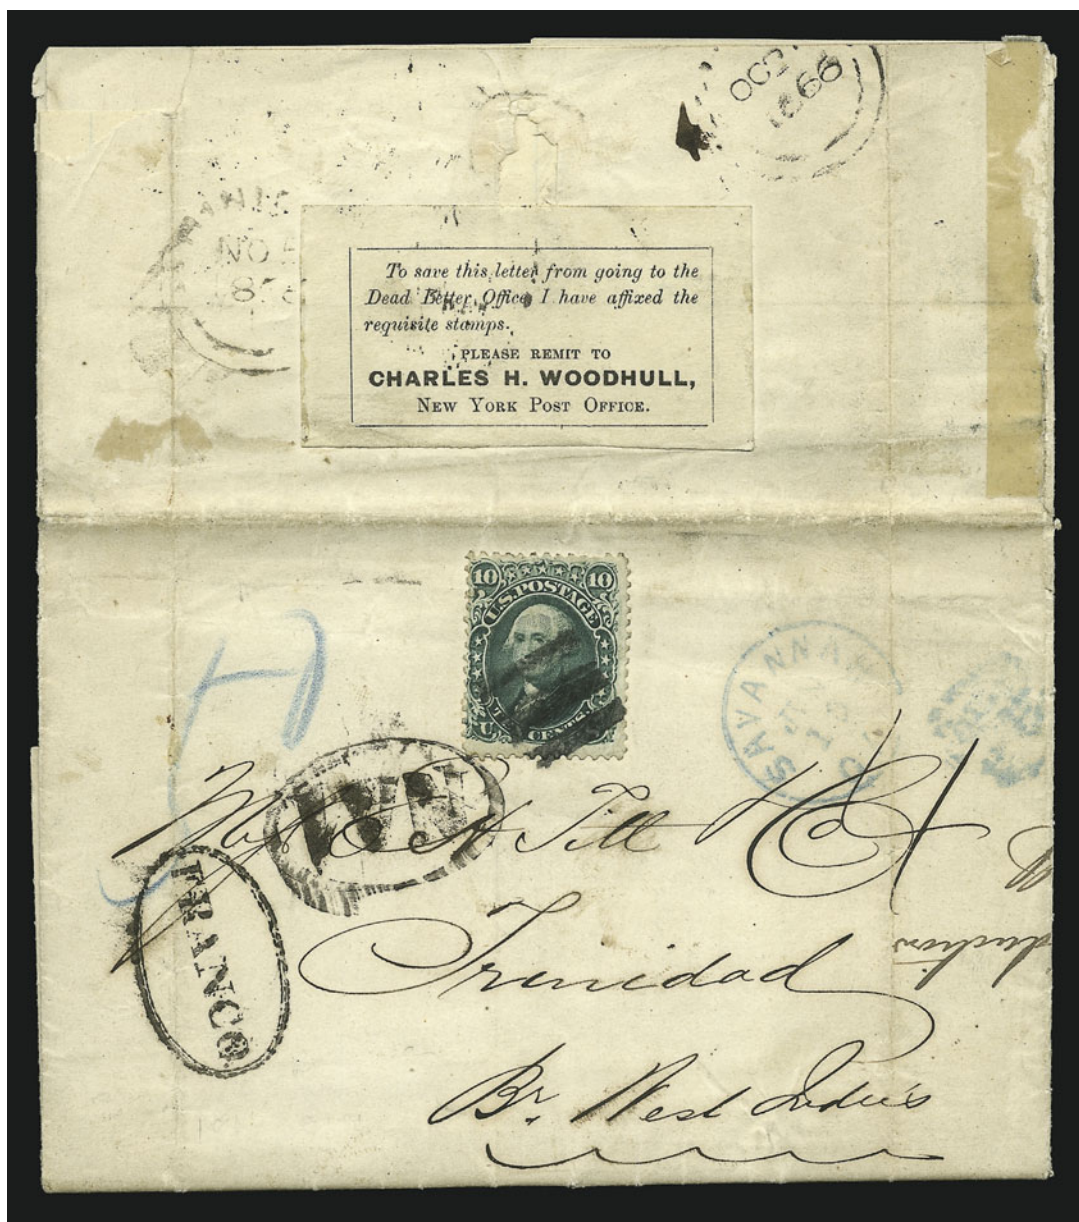 OCT
1866
NO
To save this letter from going to the
Dead Letter Office, I have affixed the
requisite stamps.
PLEASE REMIT TO
CHARLES H. WOODHULL,
NEW YORK POST OFFICE.
10 10
U.S. POSTAGE
CENTS.
SAVANNAH
FRANCO.
Trinidad
Br. West Indies